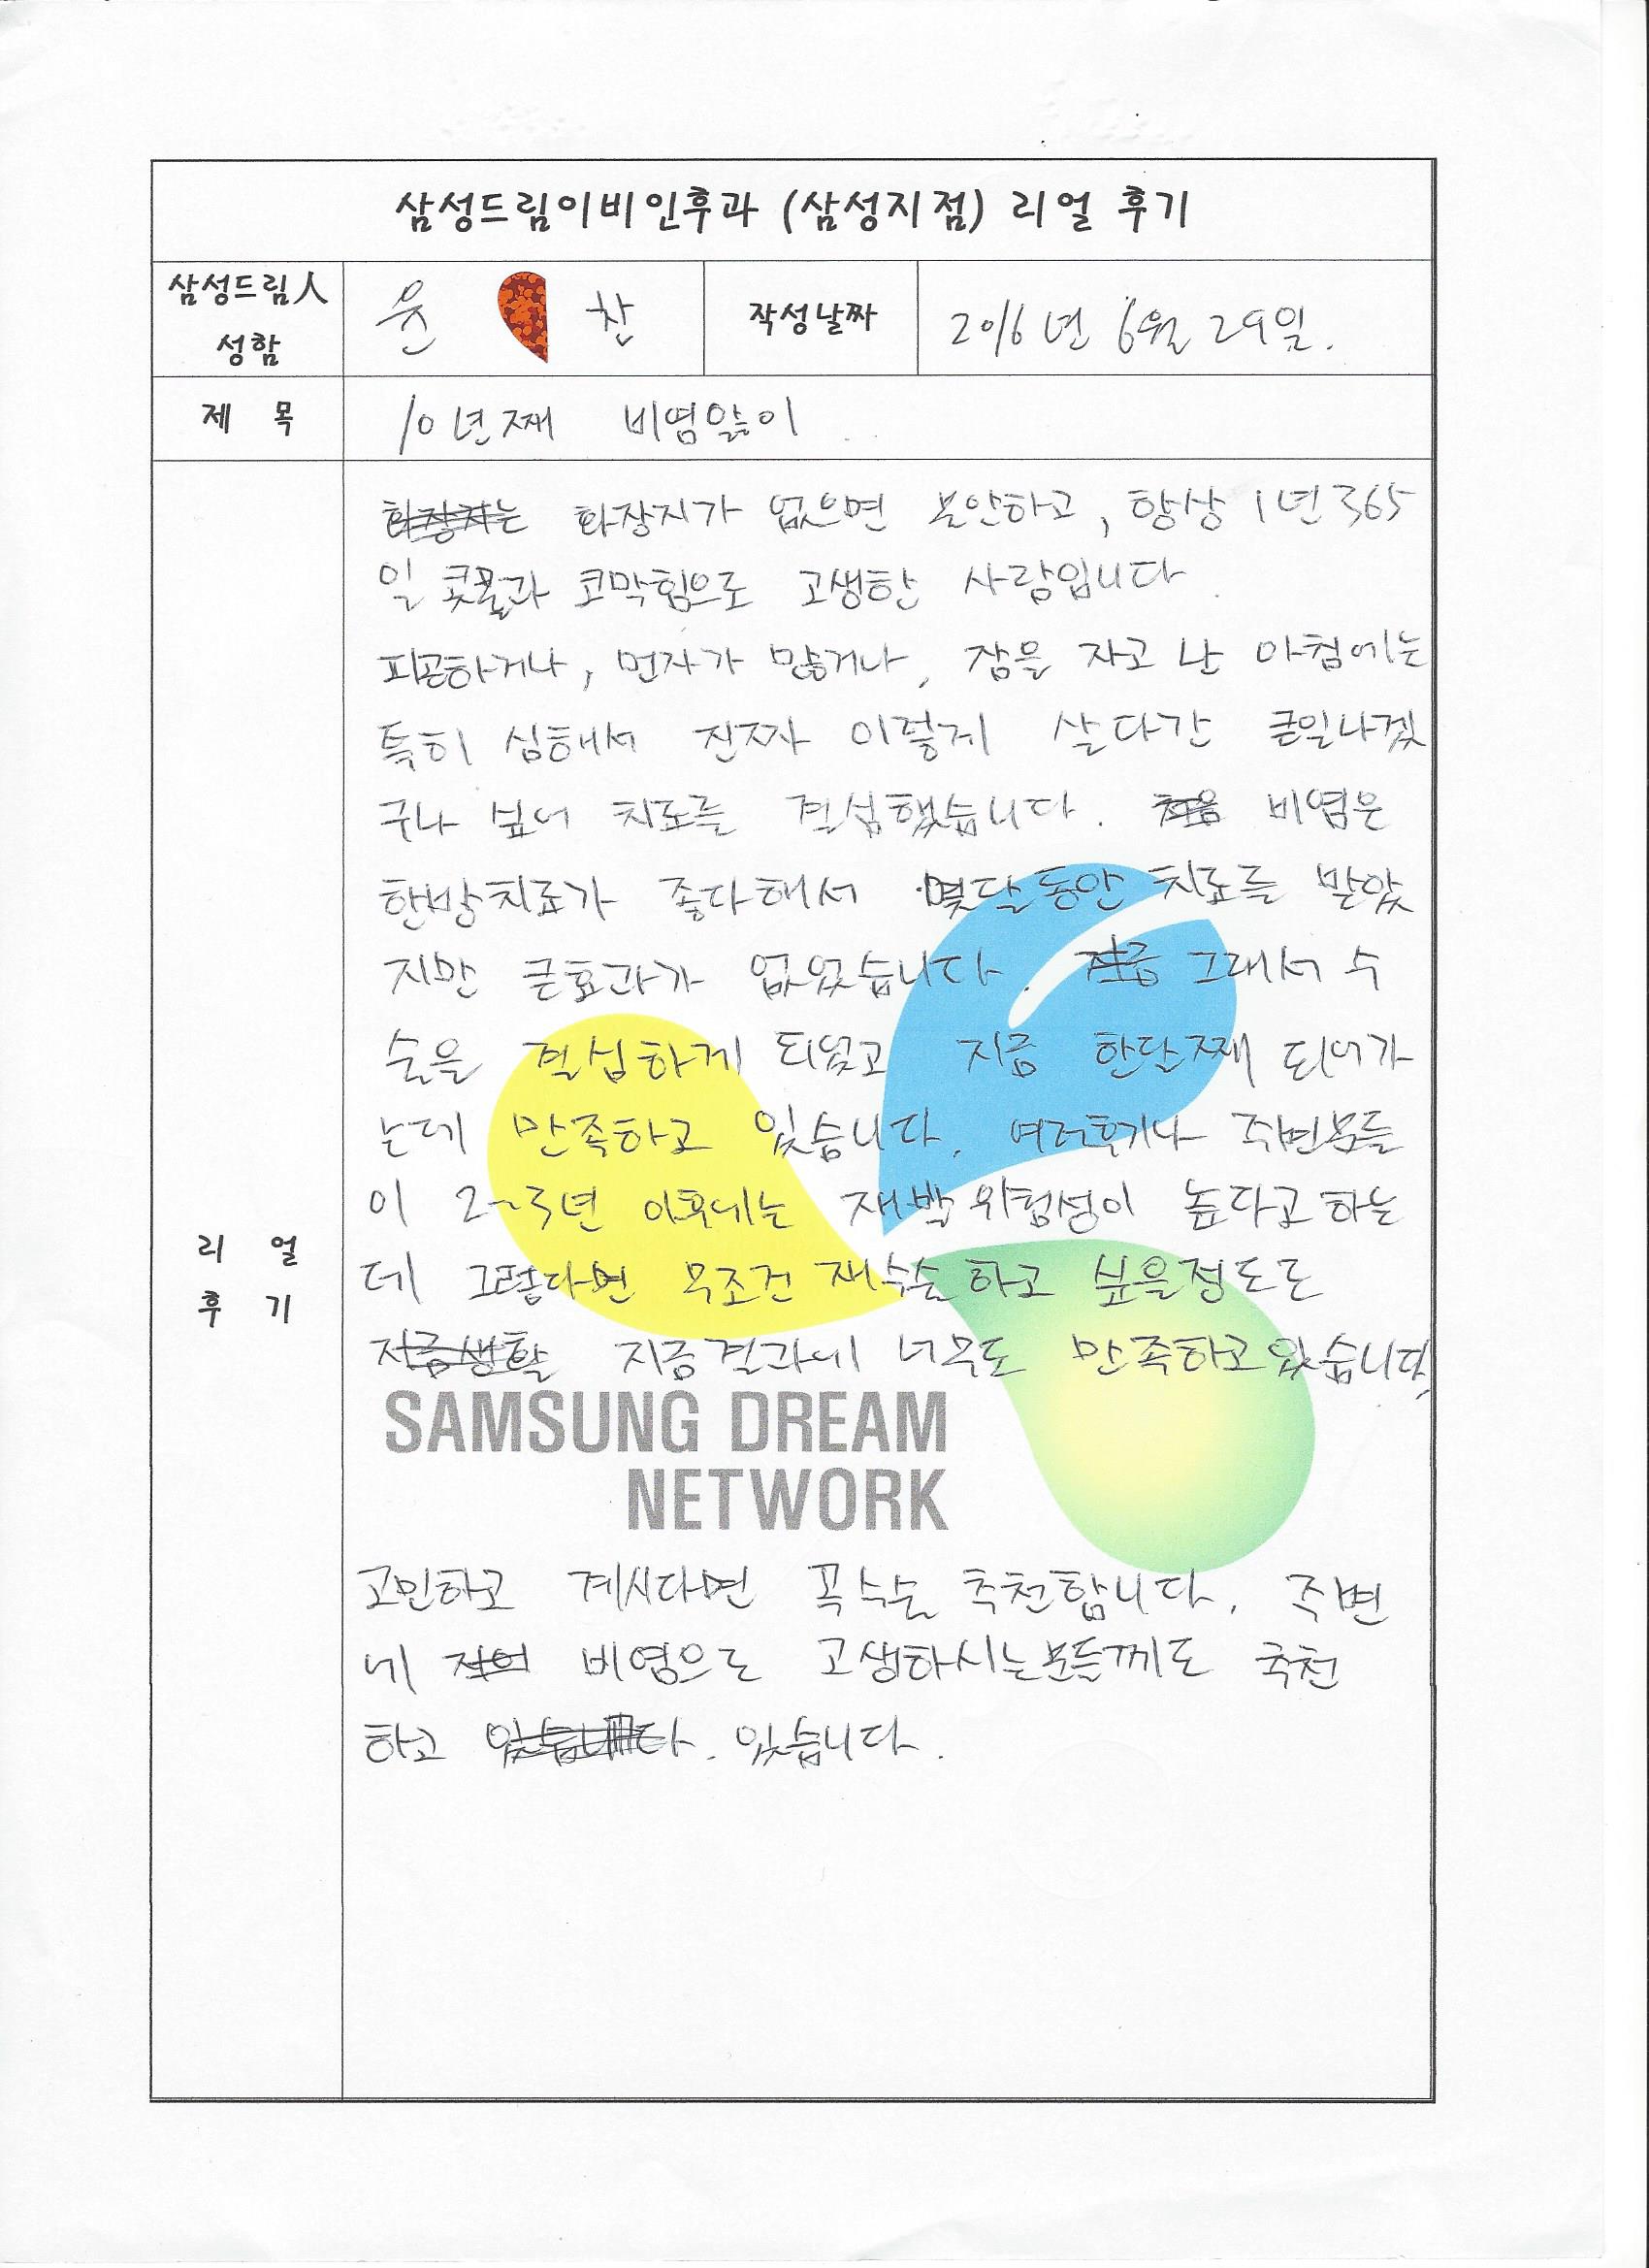 삼성드림이비인후과 (삼성지점) 리얼 후기
삼성드림人
성함
윤 찬
작성날짜
2016년 6월 29일.
제 목
10년째 비염앓이
화장지는 화장지가 없으면 불안하고, 항상 1년 365
일 콧물과 코막힘으로 고생한 사람입니다.
피곤하거나, 먼지가 많거나, 잠을 자고 난 아침에는
특히 심해서 진짜 이렇게 살다간 큰일나겠
구나 싶어 치료를 결심했습니다. 처음 비염은
한방치료가 좋다해서 몇달동안 치료를 받았
지만 큰효과가 없었습니다. 지금 그래서 수
술을 결심하게 되었고 지금 한달째 되어가
는데 만족하고 있습니다. 여러후기나 주변분들
이 2~3년 이후에는 재발위험성이 높다고 하는
데 그렇다면 무조건 재수술 하고 싶을정도로
지금생활 지금결과에 너무도 만족하고있습니다.
SAMSUNG DREAM
NETWORK
고민하고 계시다면 꼭 수술 추천합니다. 주변
에 비염으로 고생하시는분들께도 추천
하고 있습니다. 있습니다.
리 얼
후 기